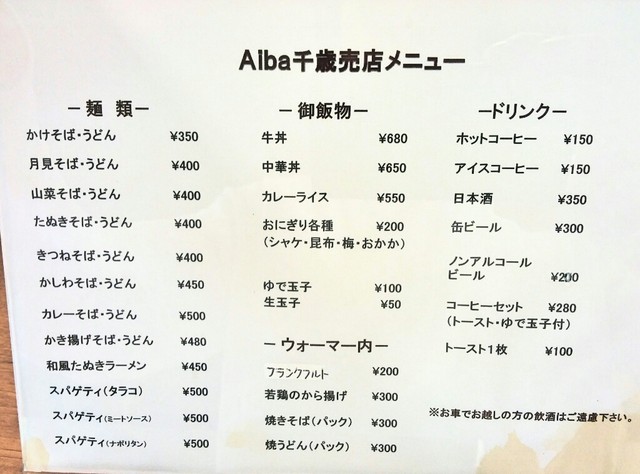 Aiba千歳売店メニュー
－麺 類－
かけそば・うどん ¥350
月見そば・うどん ¥400
山菜そば・うどん ¥400
たぬきそば・うどん ¥400
きつねそば・うどん ¥400
かしわそば・うどん ¥450
カレーそば・うどん ¥500
かき揚げそば・うどん ¥480
和風たぬきラーメン ¥450
スパゲティ（タラコ） ¥500
スパゲティ（ミートソース） ¥500
スパゲティ（ナポリタン） ¥500
－御飯物－
牛丼 ¥680
中華丼 ¥650
カレーライス ¥550
おにぎり各種 ¥200
（シャケ・昆布・梅・おかか）
ゆで玉子 ¥100
生玉子 ¥50
－ウォーマー内－
フランクフルト ¥200
若鶏のから揚げ ¥300
焼きそば（パック） ¥300
焼うどん（パック） ¥300
－ドリンク－
ホットコーヒー ¥150
アイスコーヒー ¥150
日本酒 ¥350
缶ビール ¥300
ノンアルコール
ビール ¥200
コーヒーセット ¥280
（トースト・ゆで玉子付）
トースト１枚 ¥100
※お車でお越しの方の飲酒はご遠慮下さい。